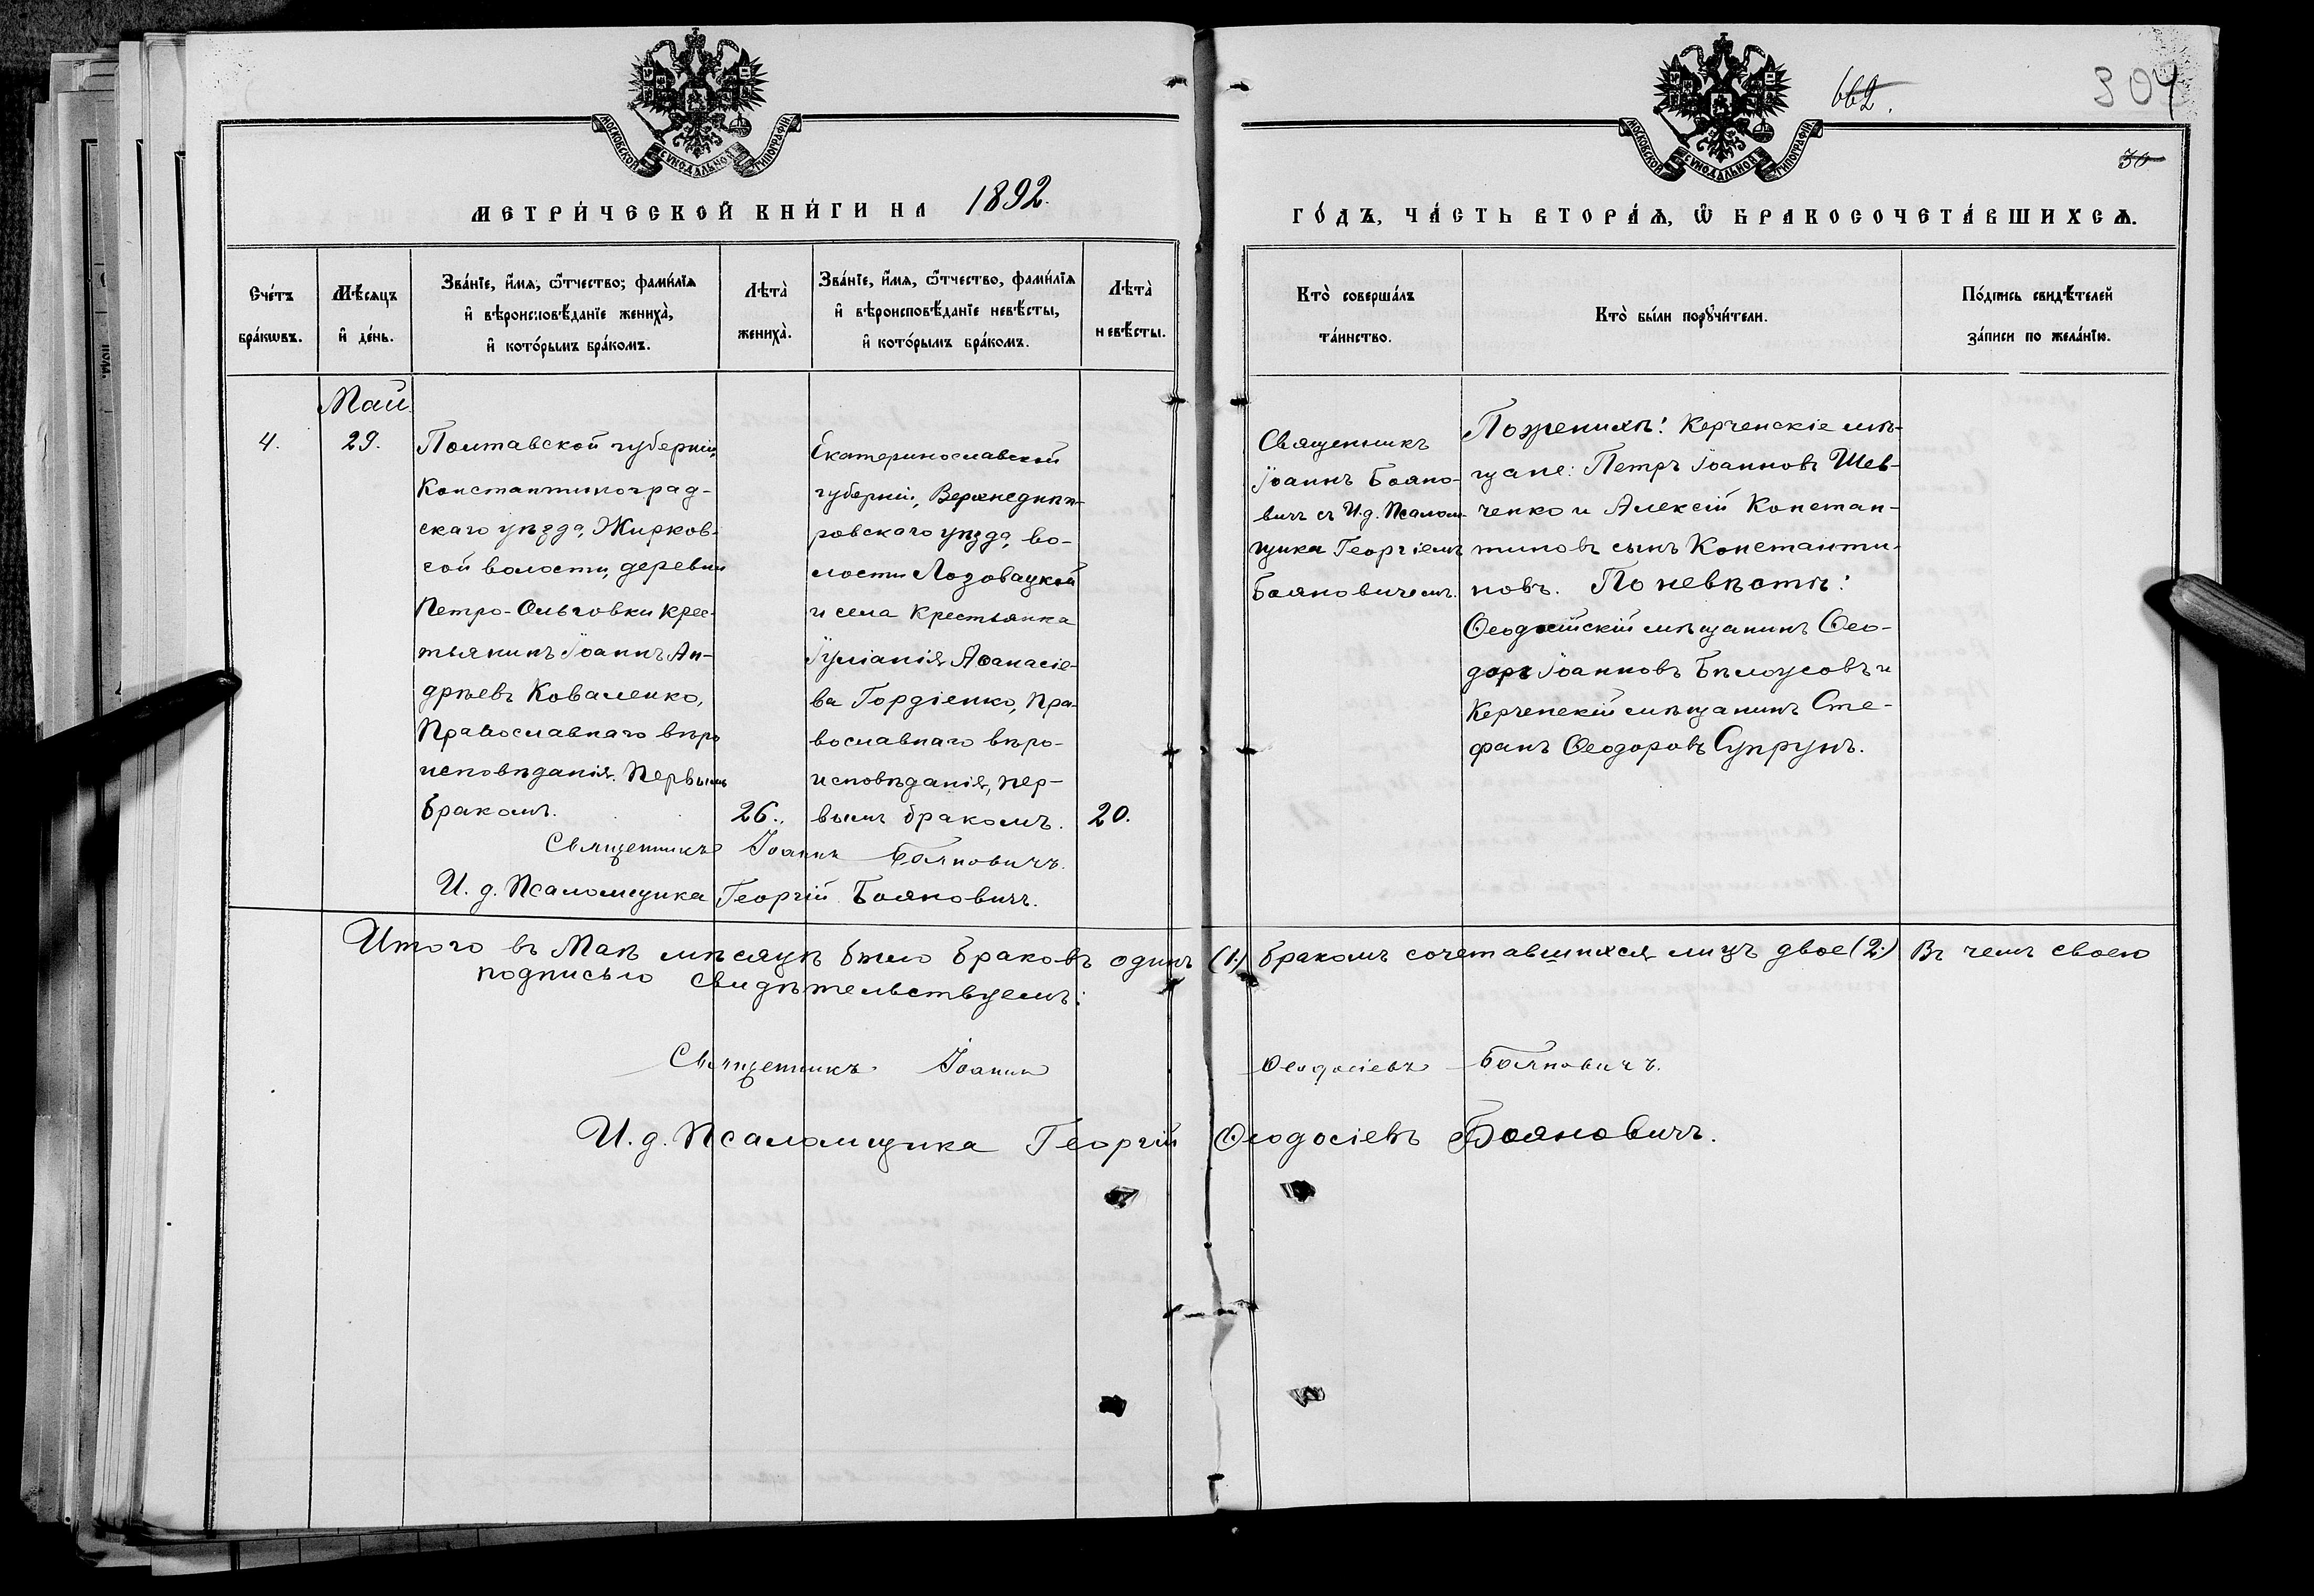 662.
304
30
МОСКОВСКОЙ СУНОДАЛЬНОЙ ТИПОГРАФІИ
МОСКОВСКОЙ СУНОДАЛЬНОЙ ТИПОГРАФІИ
МЕТРИ́ЧЕСКОЙ КНИ́ГИ НА 1892.
ГО́ДЪ, ЧА́СТЬ ВТОРА́Ѧ, Ѿ БРАКОСОЧЕТА́ВШИХСѦ.
Сче́тъ
бра́кѡвъ.
Мѣ́сяцъ
и҆ де́нь.
Зва́нїе, и҆́мя, ѻ҆́тчество; фами́лїя
и҆ вѣроисповѣ́данїе жениха̀,
и҆ кото́рымъ бра́комъ.
Лѣта̀
жениха̀.
Зва́нїе, и҆́мя, ѻ҆́тчество, фами́лїя
и҆ вѣроисповѣ́данїе невѣ́сты,
и҆ кото́рымъ бра́комъ.
Лѣта̀
невѣ́сты.
Кто̀ соверша́лъ
та́инство.
Кто̀ бы́ли порꙋчи́тели.
По́дпись свидѣ́телей
за́писи по жела́нїю.
Май.
4.
29.
Полтавской губерніи,
Константиноград-
скаго уѣзда, Жирков-
сой волости, деревни
Петро-Ольговки крес-
тьянинъ Іоаннъ Ан-
дрѣевъ Коваленко,
Православнаго вѣро
исповѣданія. Первымъ
бракомъ.
26.
Екатеринославской
губерніи, Верхнеднѣп-
ровскаго уѣзда, во-
лости Лозоватской
и села крестьянка
Іуліанія Аѳанасіе-
ва Гордіенко, Пра-
вославнаго вѣро-
исповѣданія, пер-
вымъ бракомъ.
20.
Священникъ
Іоаннъ Бояно-
вичъ съ И.д. Псалом-
щика Георгіемъ
Бояновичемъ.
По женихѣ: Керченскіе мѣ-
щане: Петръ Іоанновъ Шев-
ченко и Алексій Констан-
тиновъ сынъ Константи-
новъ. По невѣстѣ:
Ѳеодосійскій мѣщанинъ Ѳео-
доръ Іоанновъ Бѣлоусовъ и
Керченскій мѣщанинъ Сте-
фанъ Ѳеодоровъ Супрунъ.
Священникъ Іоаннъ Бояновичъ.
И. д. Псаломщика Георгій Бояновичъ.
Итого въ Маѣ мѣсяцѣ было браковъ одинъ (1.) бракомъ сочетавшихся лицъ двое (2.) Въ чемъ своею
подписью свидѣтельствуемъ:
Священникъ Іоаннъ Ѳеодосіевъ Бояновичъ.
И. д. Псаломщика Георгій Ѳеодосіевъ Бояновичъ.